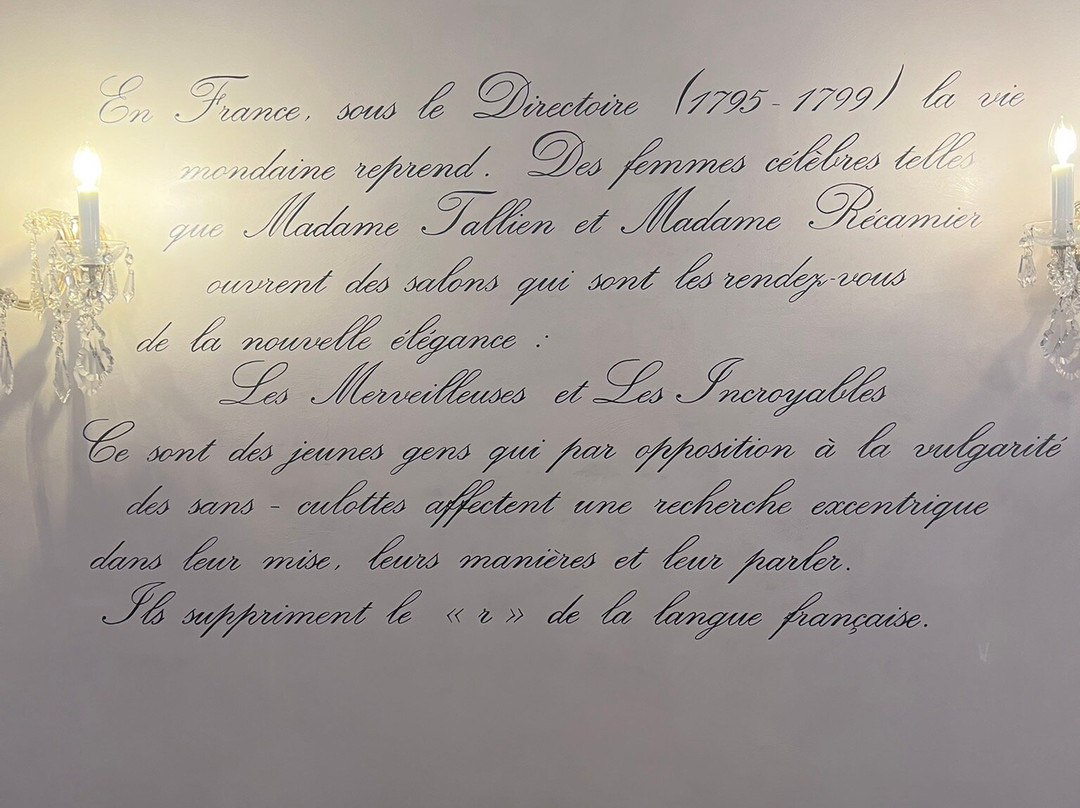 En France, sous le Directoire (1795-1799) la vie
mondaine reprend. Des femmes célèbres telles
que Madame Tallien et Madame Récamier
ouvrent des salons qui sont les rendez-vous
de la nouvelle élégance :
Les Merveilleuses et Les Incroyables
Ce sont des jeunes gens qui par opposition à la vulgarité
des sans - culottes affectent une recherche excentrique
dans leur mise, leurs manières et leur parler.
Ils suppriment le « r » de la langue française.